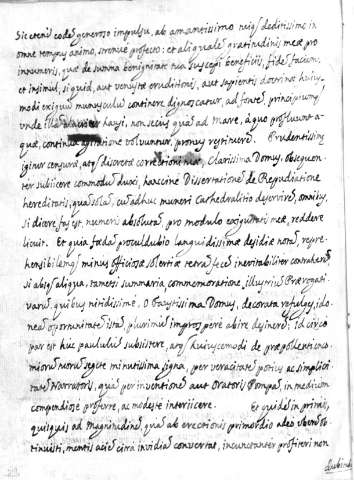 Sic etenim eodem generoso impulsu, ab amantissimo deditissime in
omne tempus animo, strenue profecto: et aliquale gratitudinis meæ pro
innumeris, quæ de summa benignitate tua suscepi beneficiis, fidem faciam:
et insimul, si quid, aut venustæ eruditionis, aut sapientis doctrinæ huius-
modi exiguum munusculum continere dignoscatur, ad fontem principium,
unde illa hausi, non secus quàm ad mare, à quo profluunt a-
quæ, continua agitatione volvuntur, pronus restituere. Prudentissimæ
igitur censuræ, atque discretæ correctioni tuæ, Clarissima Domus, obsequen-
ter subiicere commodum duxi, hancine Dissertationem de Repudiatione
hereditatis, quæ sola, cum adhuc muneri Cathedralitio deservirem, omnibus,
si dicere fas est, numeris absolutam pro modulo exiguitatis meæ, reddere
licuit. Et quia fœdam proculdubio languidissimæ desidiæ notam, repre-
hensibilemque minus officiosæ solertiæ tetram fecem inevitabiliter contraherem
si absque aliqua, tametsi summaria, commemoratione, illustrium Prærogati-
varum, quibus nitidissime, O Beatissima Domus, decorata refulges, ido-
neam opportunitatem istam plurimum impropere abire desinerem; id circo
par est huc paululum subsistere, atque huiuscemodi de præpollentium co-
miorum tuorum segete minutissima signa, per veracitatem potius ac simplici-
tatem Narratoris, quam per inventionem aut Oratoris Pompam in medium
compendiosè proferre, ac modeste interiicere. Et quidem in primis,
quisquis ad Magnitudinem, quam ab erectionis primordio adeo
tinuisti, mentis aciem citra invidiam converterit, incunctanter profiteri non